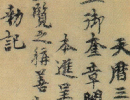 天暦三
上御奎章閣
本進呈
覽之稱善
勅記